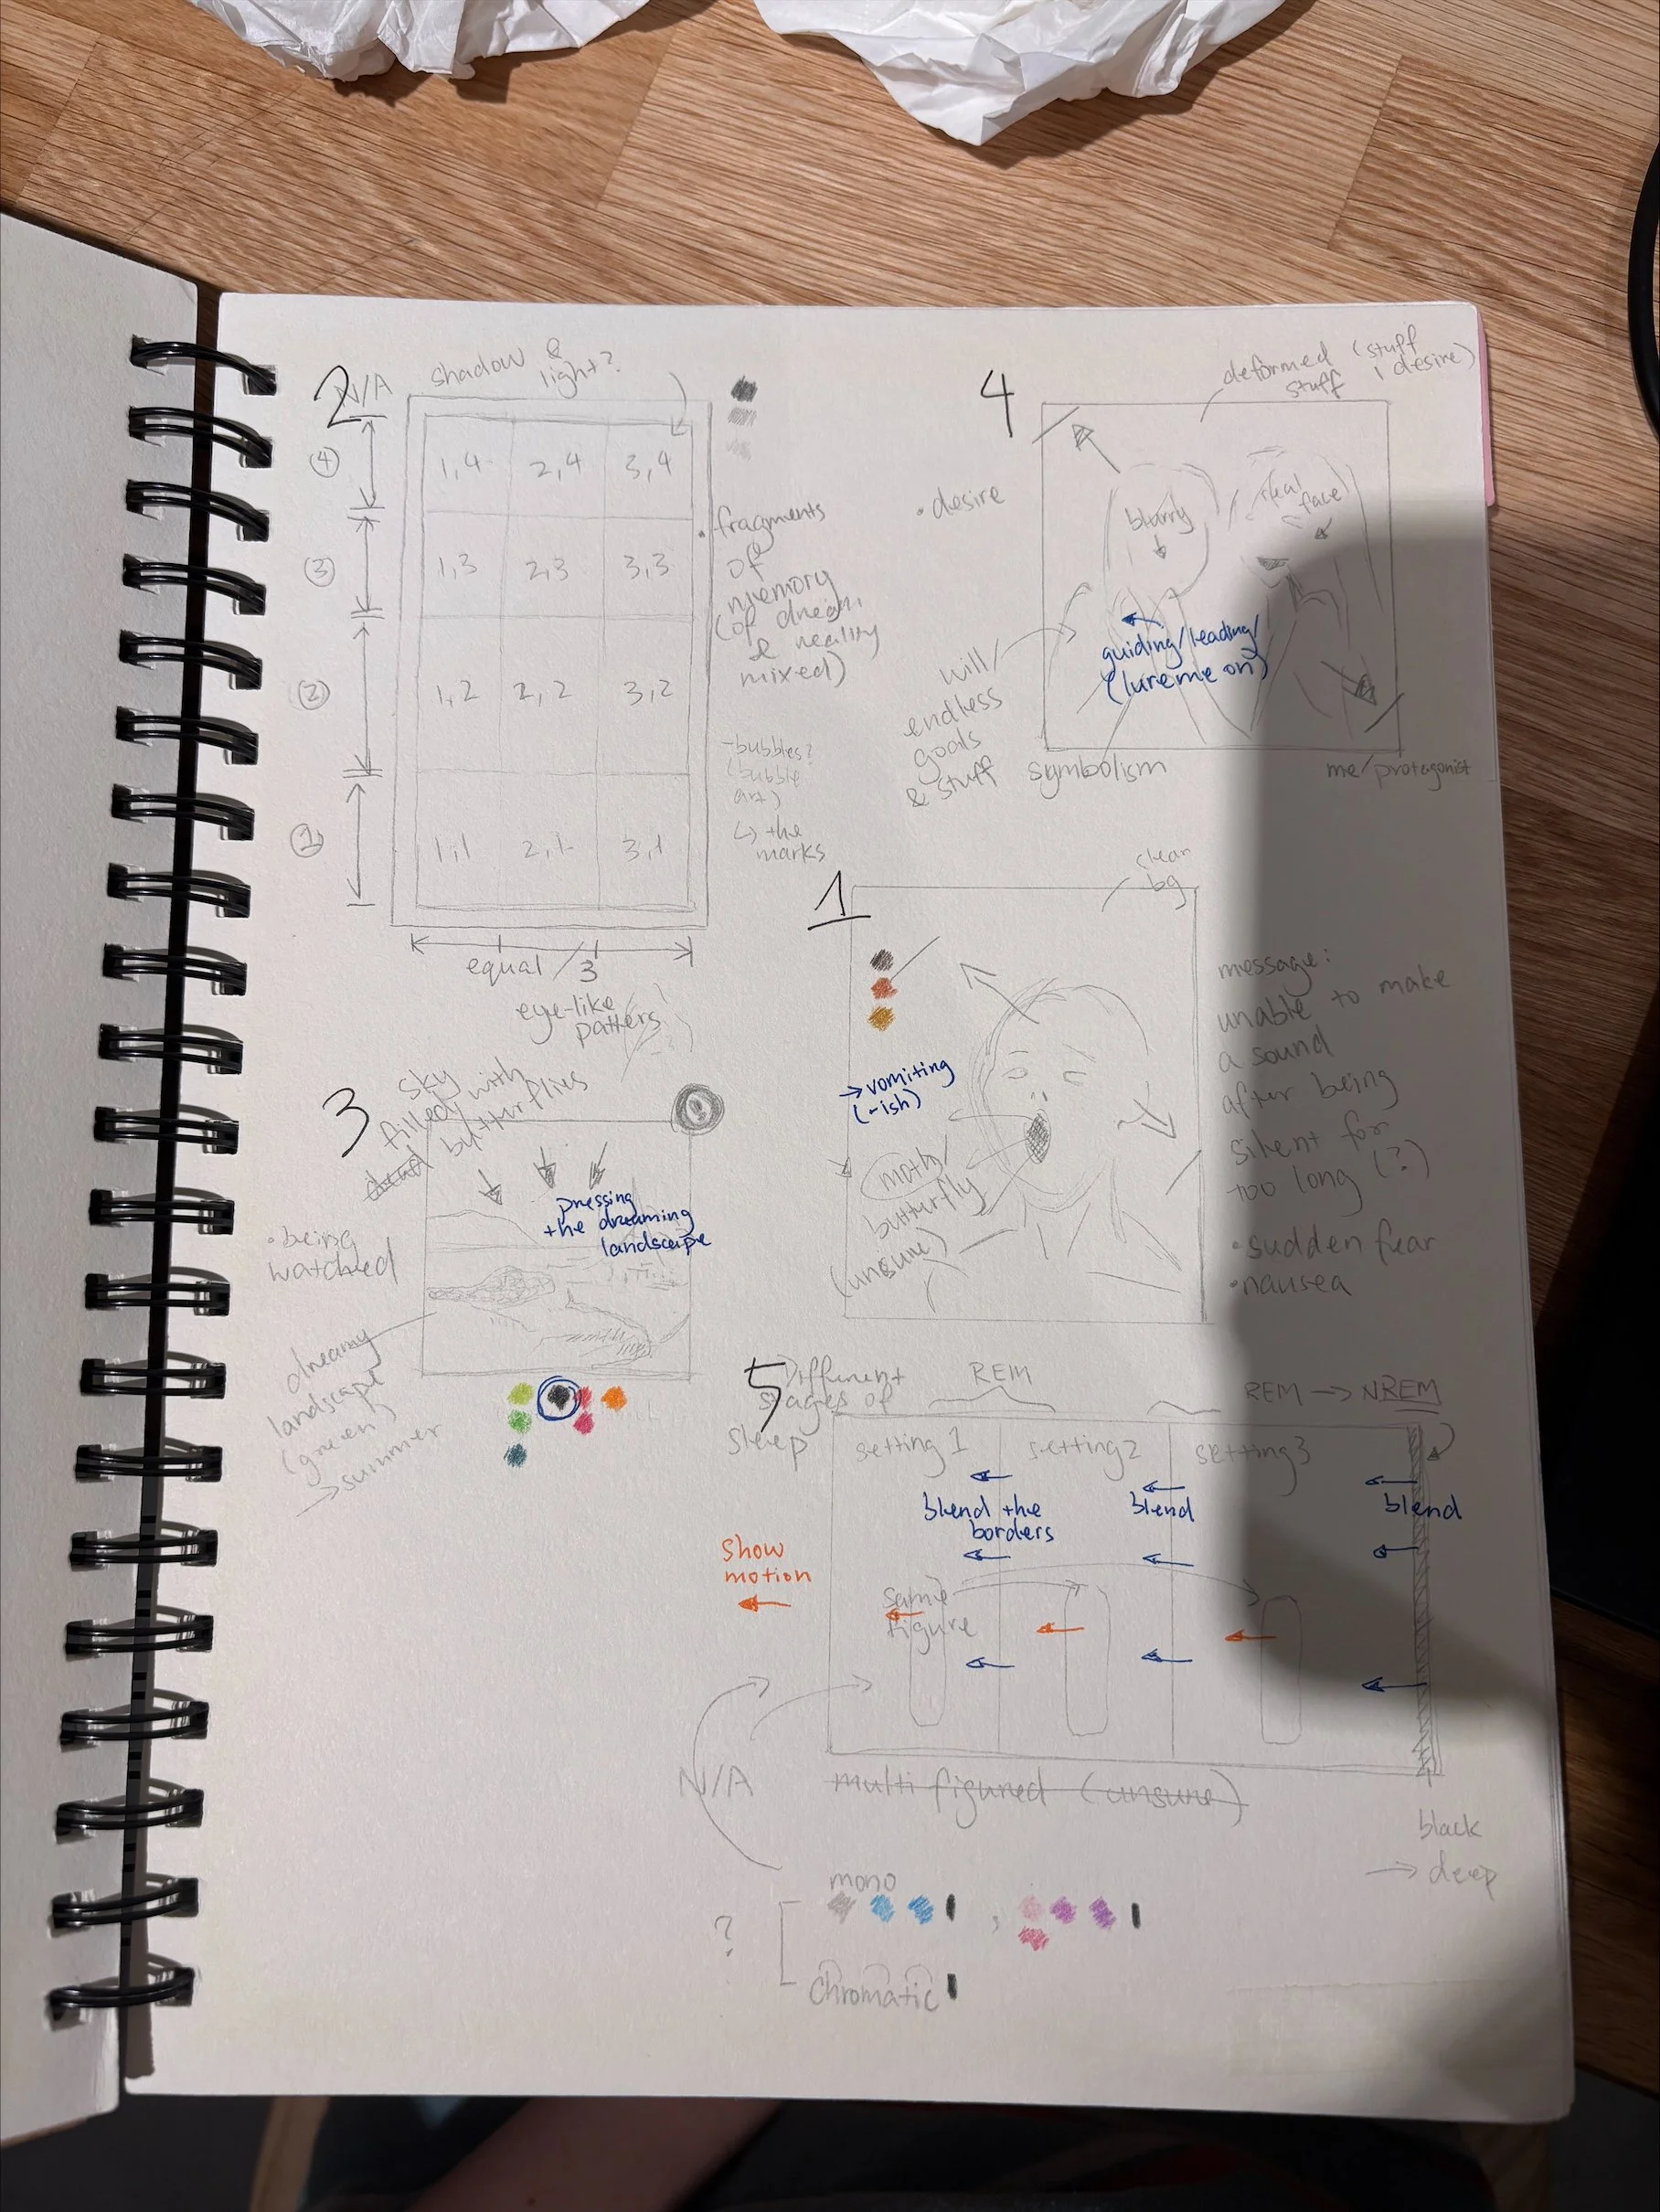 2
N/A
shadow &
light?
4
1,4
2,4
3,4
3
1,3
2,3
3,3
2
1,2
2,2
3,2
1
1,1
2,1
3,1
equal / 3
• fragments
of
memory
(of dream
& reality
mixed)
- bubbles?
(bubble
art)
↳ the
marks
4
deformed (stuff
stuff I desire)
• desire
blurry
real
face
guiding/leading/
(lure me on)
will/
endless
goals
& stuff
symbolism
me/protagonist
3
eye-like
patters
sky
filled with
dead butterflies
pressing
the dreaming
landscape
• being
watched
dreamy
landscape
(green)
→ summer
1
clean
bg
→ vomiting
(-ish)
moth/
butterfly
(unsure)
message:
unable to make
a sound
after being
silent for
too long (?)
• sudden fear
• nausea
5
Different
stages of
sleep
REM
REM → NREM
setting 1
setting 2
setting 3
blend the
borders
blend
blend
show
motion
same
figure
N/A
multi figured (unsure)
black
→ deep
?
mono
,
chromatic